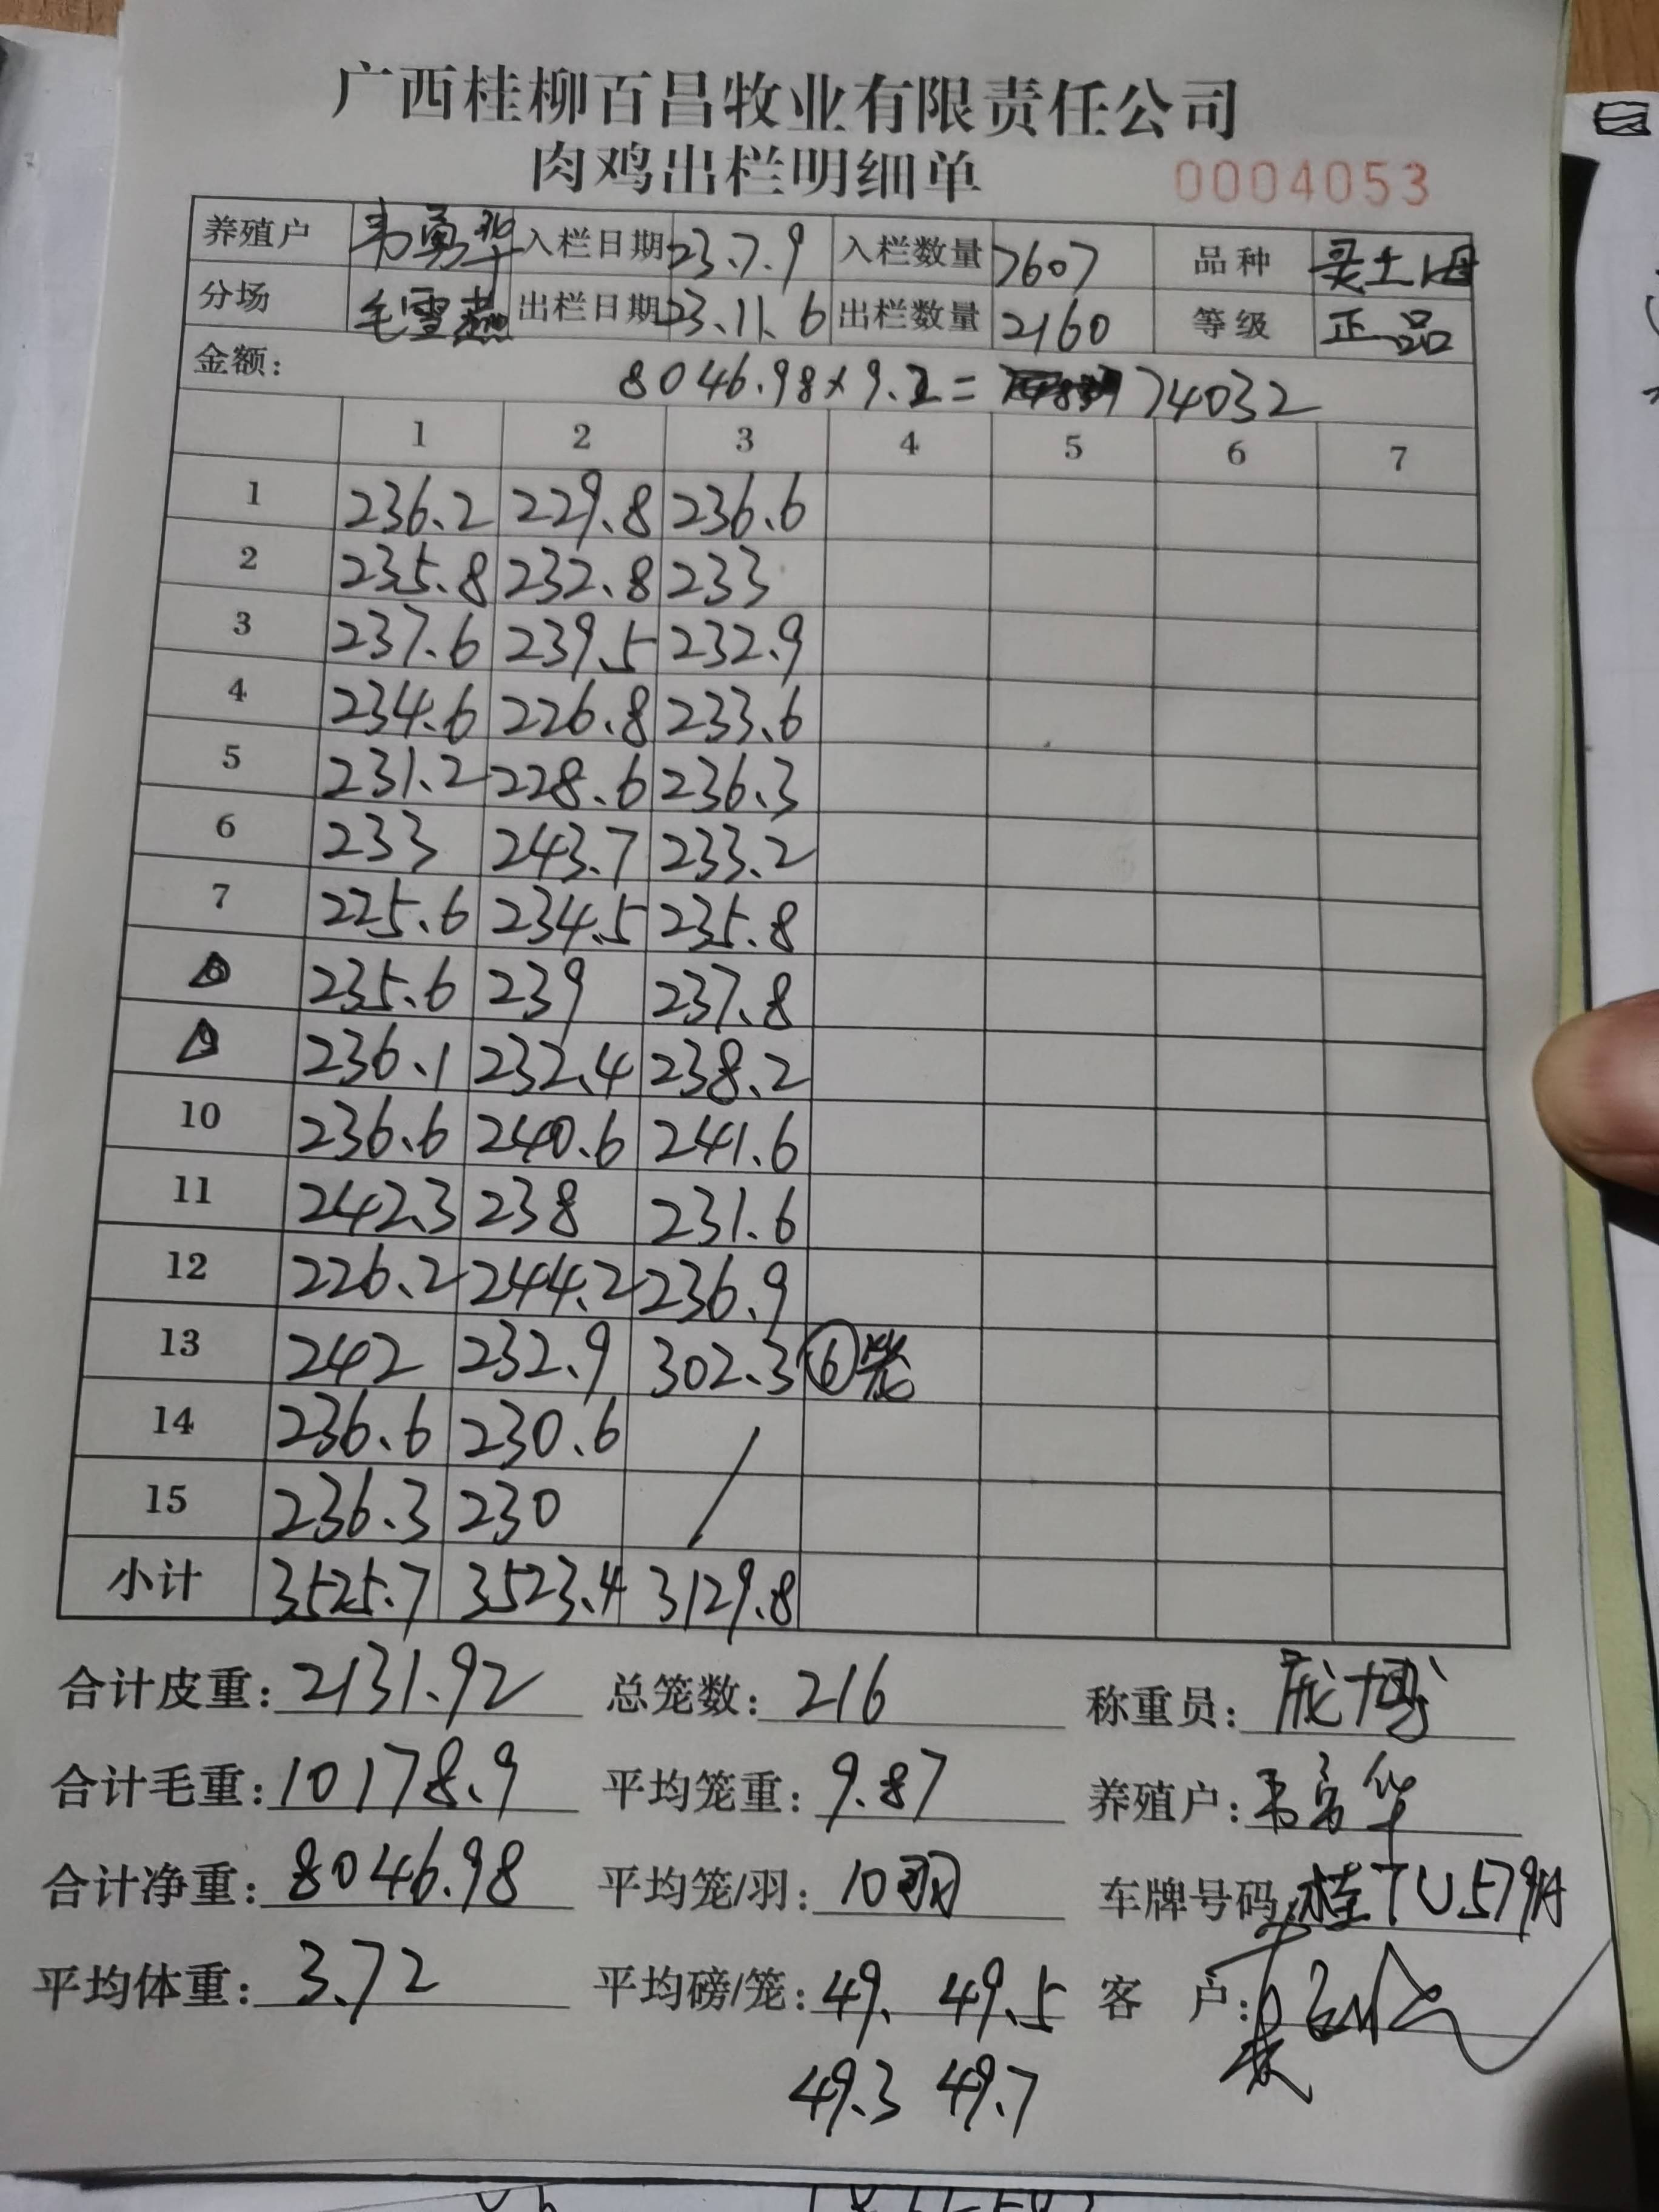 广西桂柳百昌牧业有限责任公司
肉鸡出栏明细单 0004053
养殖户 韦勇华 入栏日期 23.7.9 入栏数量 7607 品种 灵土
分场 毛雪燕 出栏日期 23.11.6 出栏数量 2160 等级 正品
金额: 8046.98×9.2= 74032
1 2 3 4 5 6 7
1 236.2 229.8 236.6
2 235.8 232.8 233
3 237.6 239.5 232.9
4 234.6 226.8 233.6
5 231.2 228.6 236.3
6 233 243.7 233.2
7 225.6 234.5 235.8
8 235.6 239 237.8
9 236.1 232.4 238.2
10 236.6 240.6 241.6
11 242.3 238 231.6
12 226.2 244.2 236.9
13 242 232.9 302.3 ⑥笼
14 236.6 230.6
15 236.3 230
小计 3525.7 3523.4 3129.8
合计皮重: 2131.92 总笼数: 216 称重员:
合计毛重: 10178.9 平均笼重: 9.87 养殖户: 韦勇华
合计净重: 8046.98 平均笼/羽: 10羽 车牌号码: 桂TU579A
平均体重: 3.72 平均磅/笼: 49. 49.5 客 户:
49.3 49.7